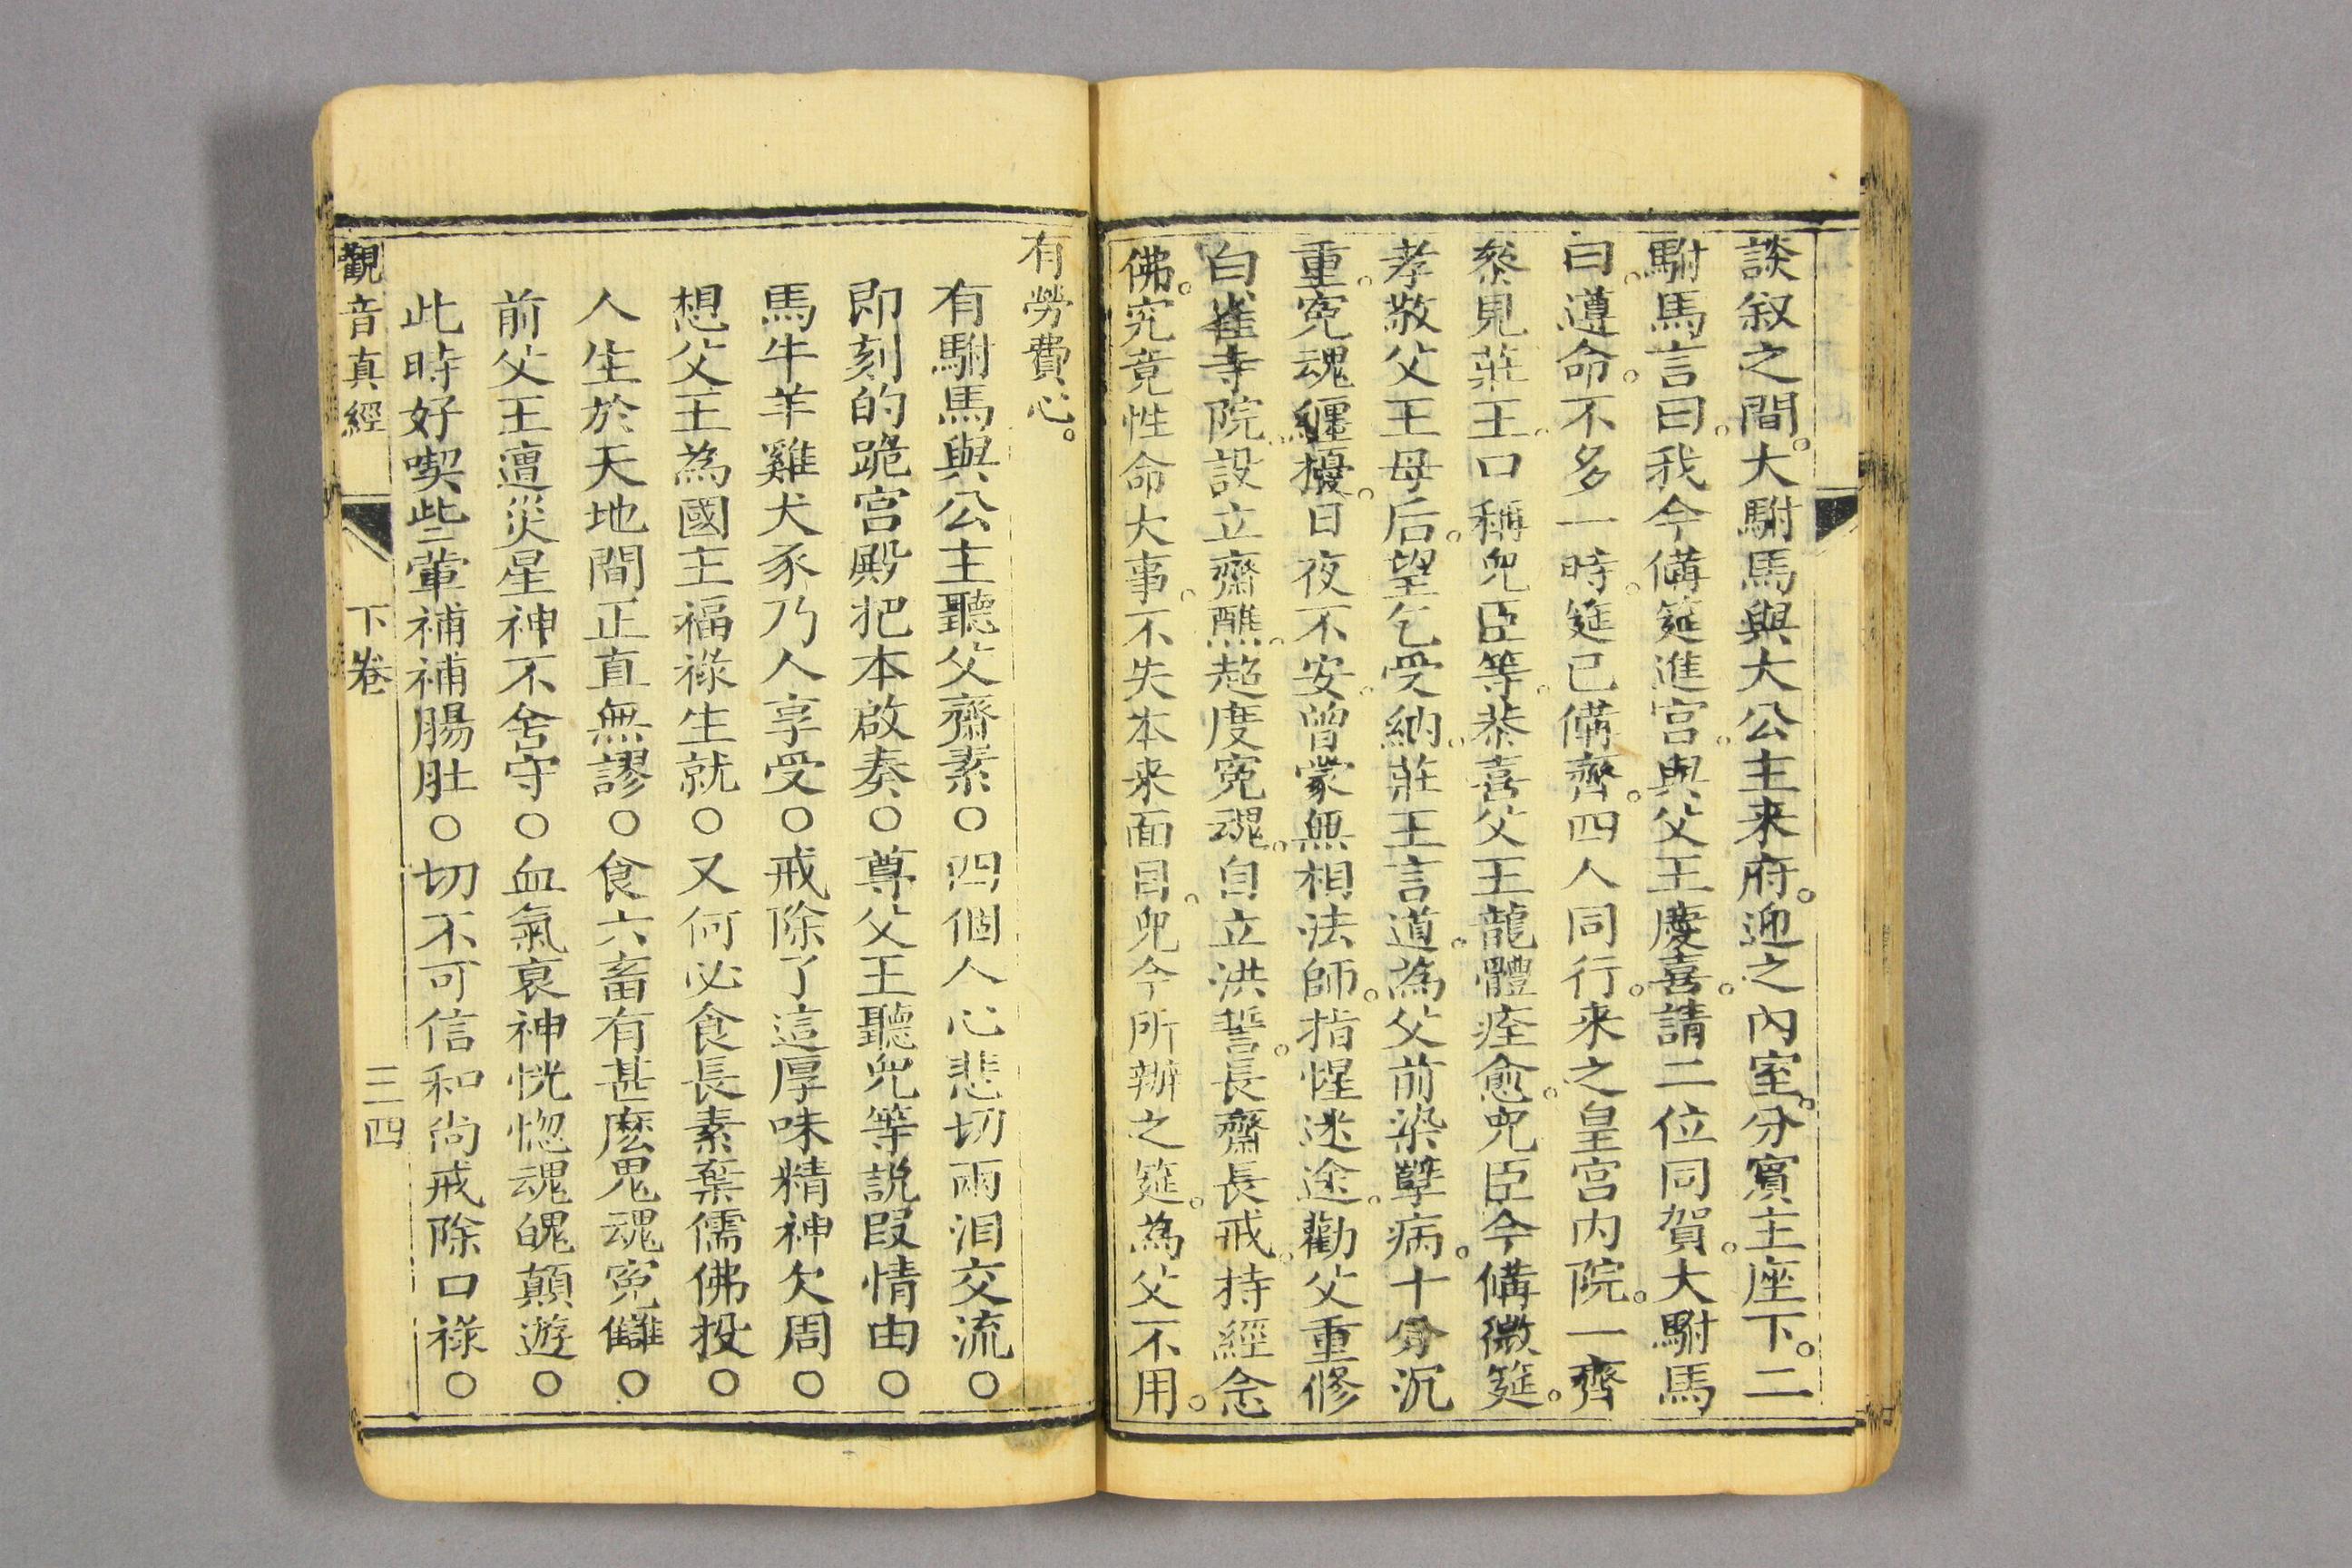 談叙之間。大駙馬與大公主来府。迎之內室。分賓主座下。二
駙馬言曰。我今備筵進宮。與父王慶喜。請二位同賀。大駙馬
曰。遵命。不多一時。筵已備齊。四人同行。来之皇宮内院。一齊
叅見莊王。口稱兒臣等。恭喜父王龍體痊愈。兒臣今備微筵。
孝敬父王母后。望乞受納。莊王言道。為父前染孽病。十分沉
重。寃魂纏擾。日夜不安。曾蒙無相法師。指惺迷途。勸父重修
白雀寺院。設立齋醮。超度寃魂。自立洪誓。長齋長戒。持經念
佛。究竟性命大事。不失本来面目。兒今所辦之筵。為父不用。
有勞費心。
有駙馬與公主聽父齋素○四個人心悲切兩泪交流○
即刻的跪宫殿把本啟奏○尊父王聽兒等説叚情由○
馬牛羊雞犬豕乃人享受○戒除了這厚味精神欠周○
想父王為國主福祿生就○又何必食長素棄儒佛投○
人生於天地間正直無謬○食六畜有甚麽鬼魂寃讎○
前父王遭災星神不舍守○血氣衰神恍惚魂魄顛遊○
此時好喫些葷補補腸肚○切不可信和尚戒除口祿○
觀音真經 下卷 三四